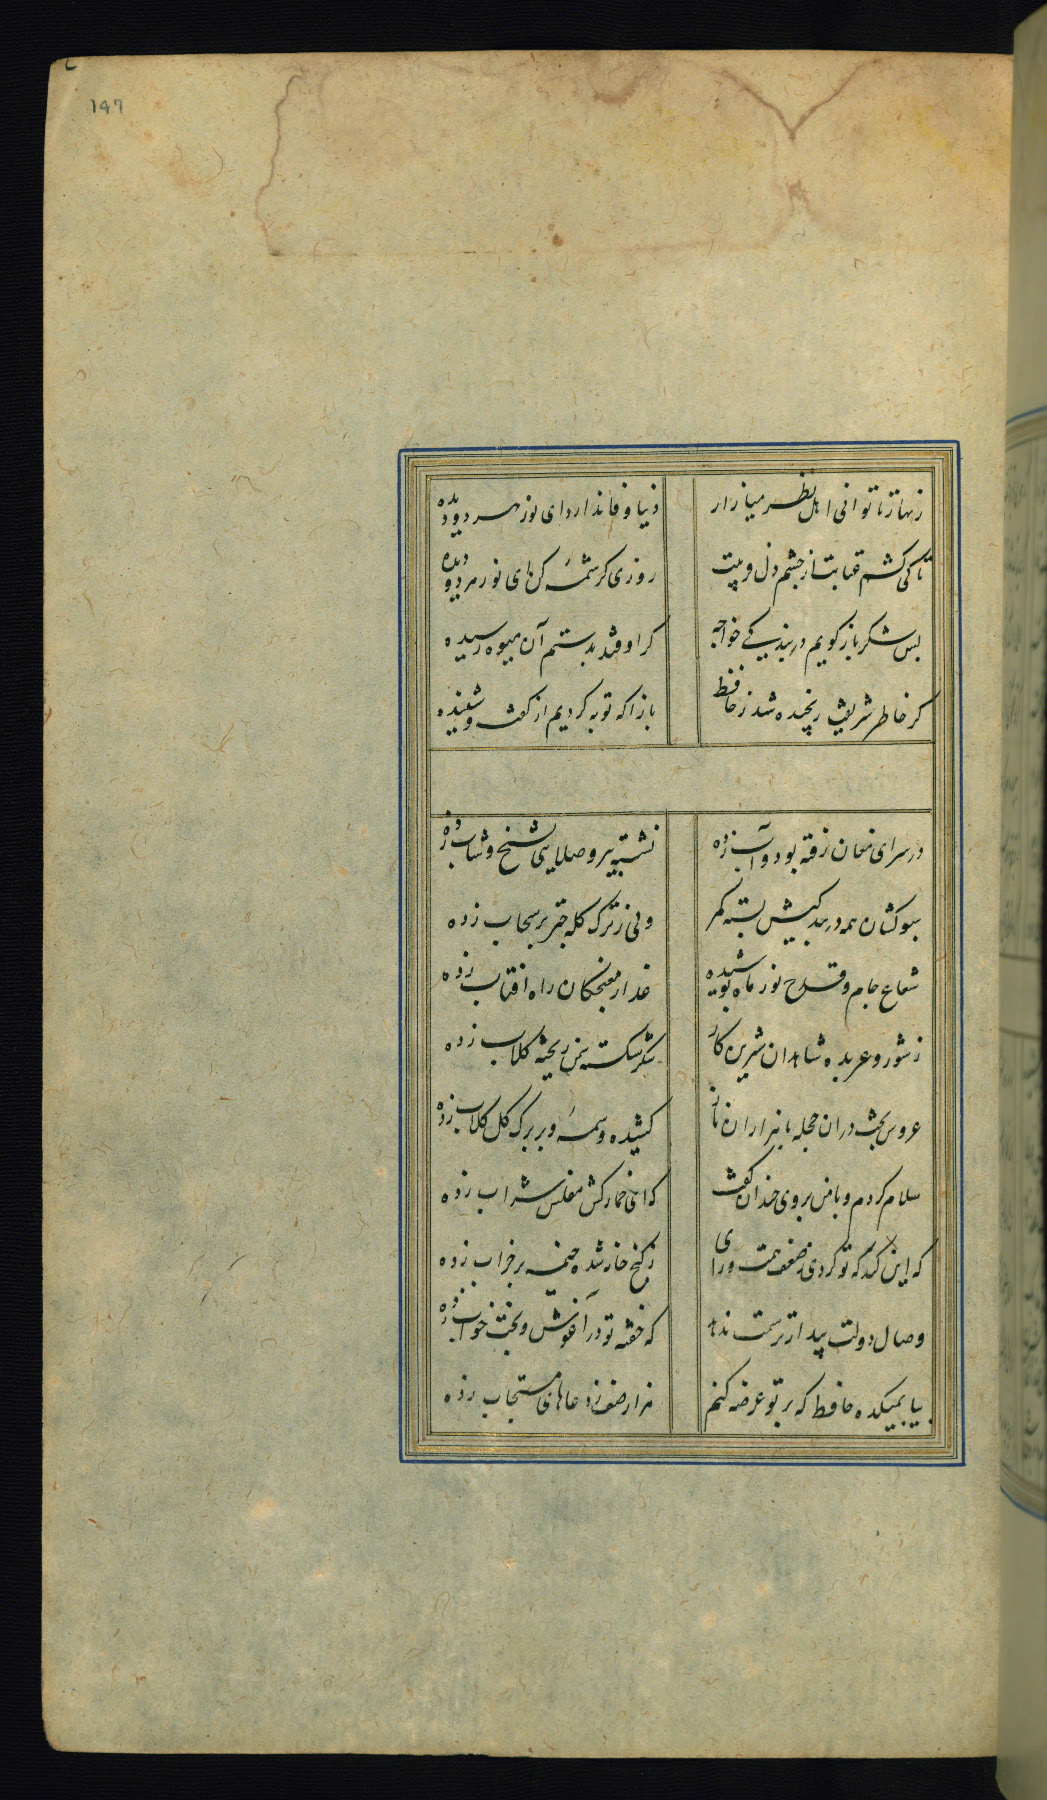 147
زنهار تا توانی اهل نظر میازار
دنیا وفا ندارد ای نور هر دو دیده
تا کی کشم عتابت از چشم دل فریبت
روزی کرشمه کن ای نور هر دو دیده
بس شکر باز کویم در بندگی خواجه
کر اوفتد بدستم آن میوه رسیده
کر خاطر شریفت رنجیده شد ز حافظ
باز آکه توبه کردیم از کفته و شنیده
در سرای مغان رفته بود و آب زده
نشسته پیر و صلایی بشیخ و شاب زده
سبوکشان همه در بندکیش بسته کمر
ولی ز ترک کله چتر بر سحاب زده
شعاع جام و قدح نور ماه پوشیده
عذار مغبچکان راه افتاب زده
ز شور و عربده شاهدان شیرین کار
شکر شکسته سمن ریخته کلاب زده
عروس بخت دران حجله با هزاران ناز
کشیده وسمه و بر برک کل کلاب زده
سلام کردم و با من بروی خندان کفت
که ای خمارکش مفلس شراب زده
که این کند که تو کردی ز ضعف همت و رای
ز کنج خانه شده خیمه بر خراب زده
وصال دولت بیدار ترسمت ندهند
که خفته تو در آغوش بخت خواب زده
بیا بمیکده حافظ که بر تو عرضه کنم
هزار صف ز دعاهای مستجاب زده